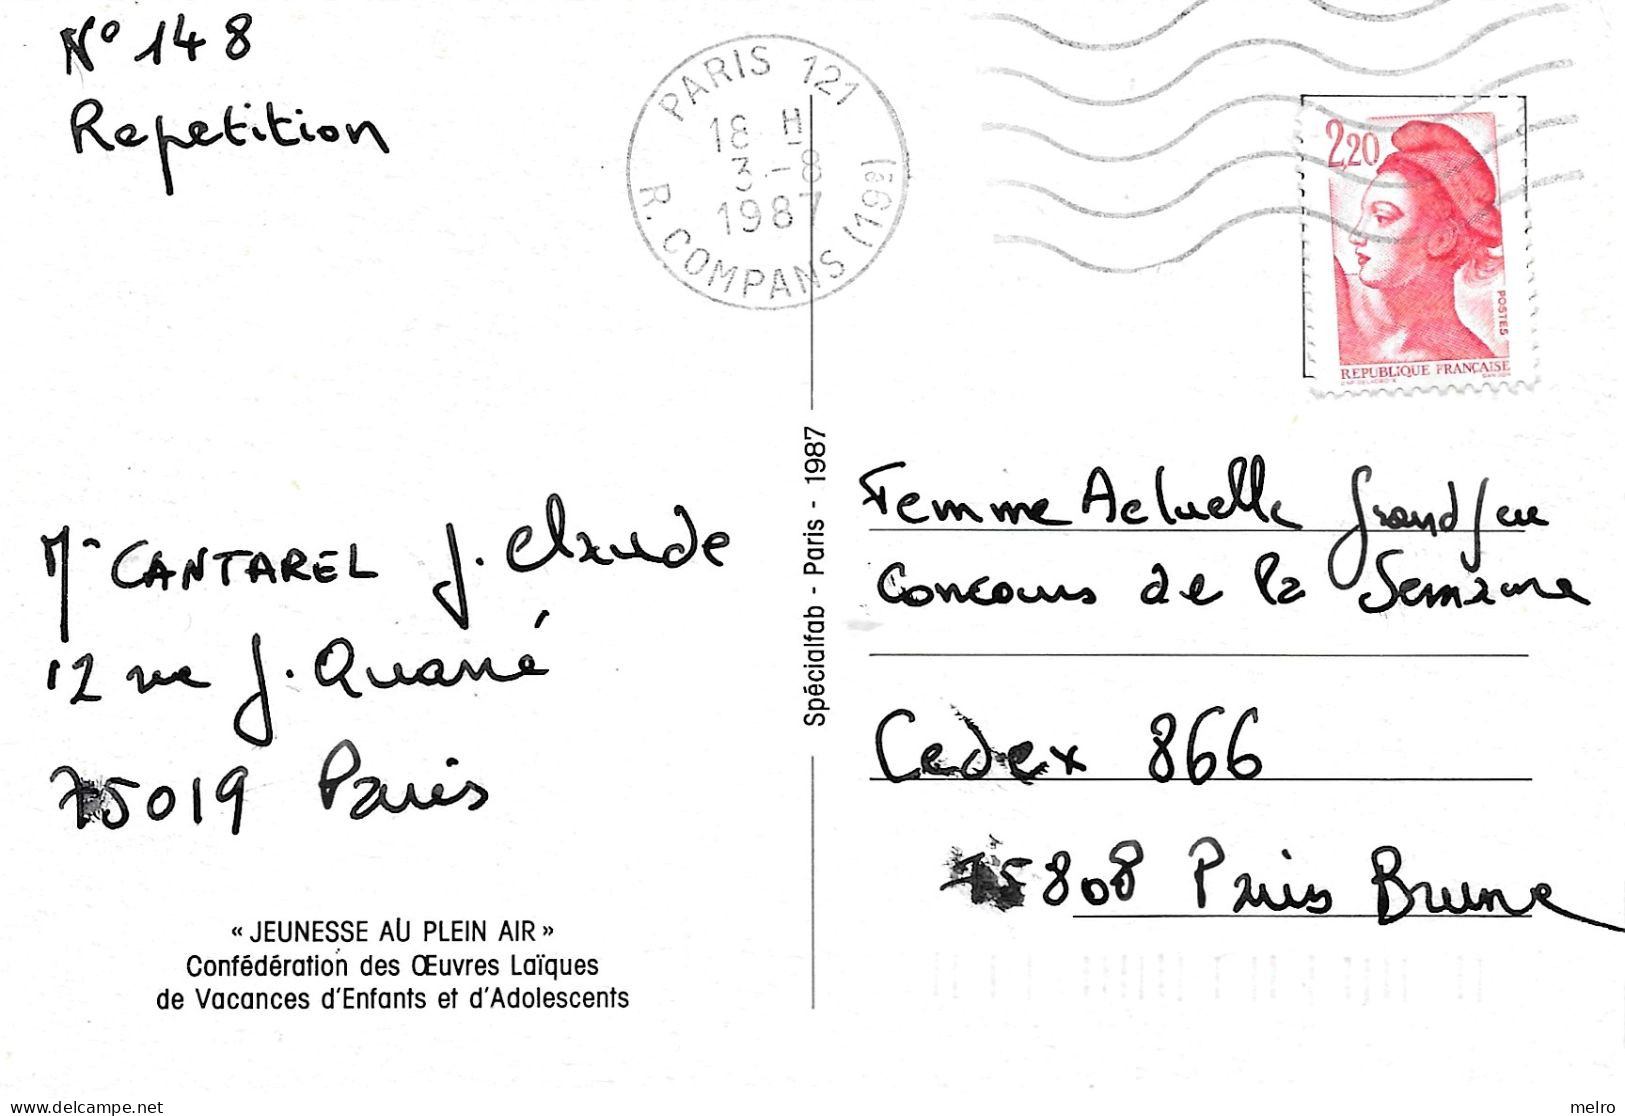 N° 148
Repetition
PARIS 121
18 H
3-8
1987
R. COMPANS (19E)
2,20
POSTES
REPUBLIQUE FRANÇAISE
Mr CANTAREL J. Claude
12 rue J. Quarré
75019 Paris
« JEUNESSE AU PLEIN AIR »
Confédération des Œuvres Laïques
de Vacances d'Enfants et d'Adolescents
Spécialfab - Paris - 1987
Femme Actuelle Grand Jeu
Concours de la Semaine
Cedex 866
75808 Paris Brune
www.delcampe.net
melro